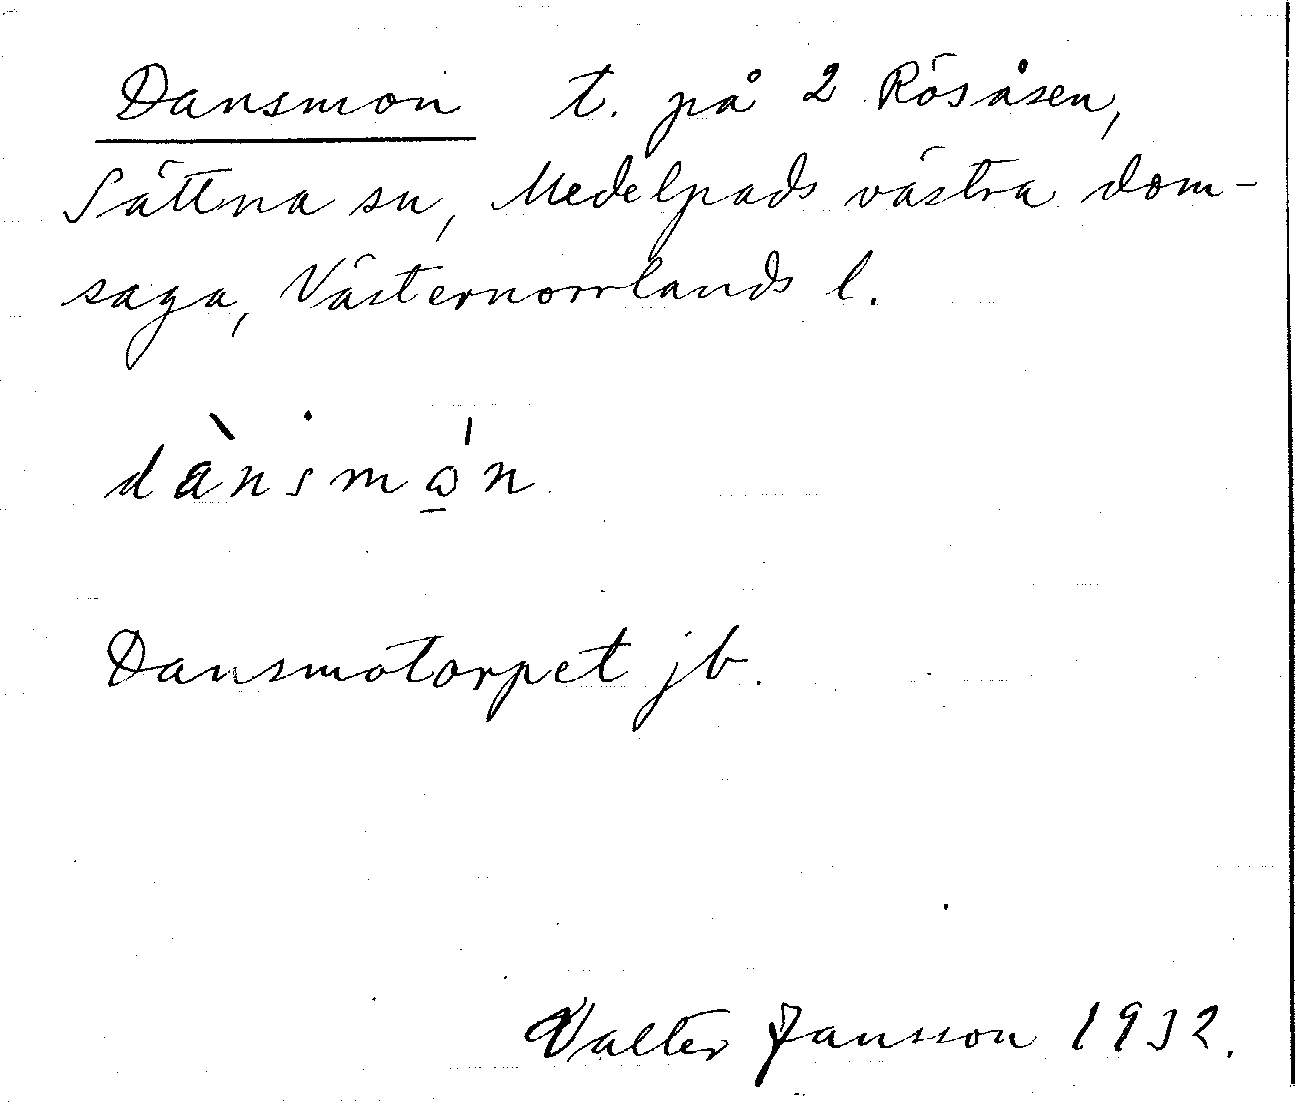 Dansmon t. på 2 Rösåsen,
Sättna sn, Medelpads västra dom-
saga, Västernorrlands l.
dànsmo̲̍n
Dansmotorpet jb.
Valter Jansson 1932.